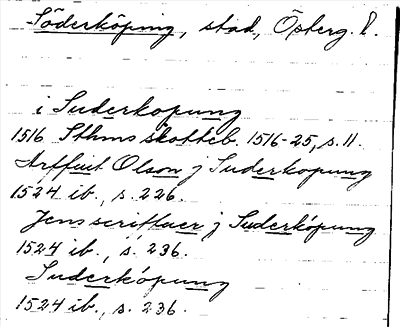 Söderköping, stad, Österg. l.
i Suderkopung
1516 Sthms skotteb. 1516-25, s. 11.
Arffuit Olson j Suderkopung
1524 ib., s. 226.
Jens scriffuer j Suderkópung
1524 ib., s. 236.
Suderkópung
1524 ib., s. 236.